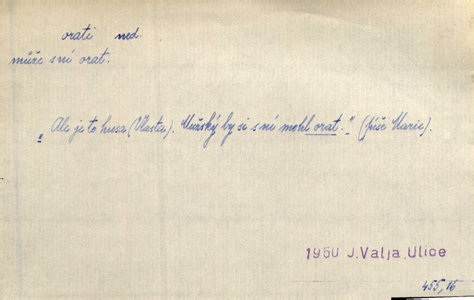 orati ned.
může s ní orat.
„Ale je to husa (Vlasta). Mužský by si s ní mohl orat." (píše Marie).
1950 J.Valja,Ulice
455,16